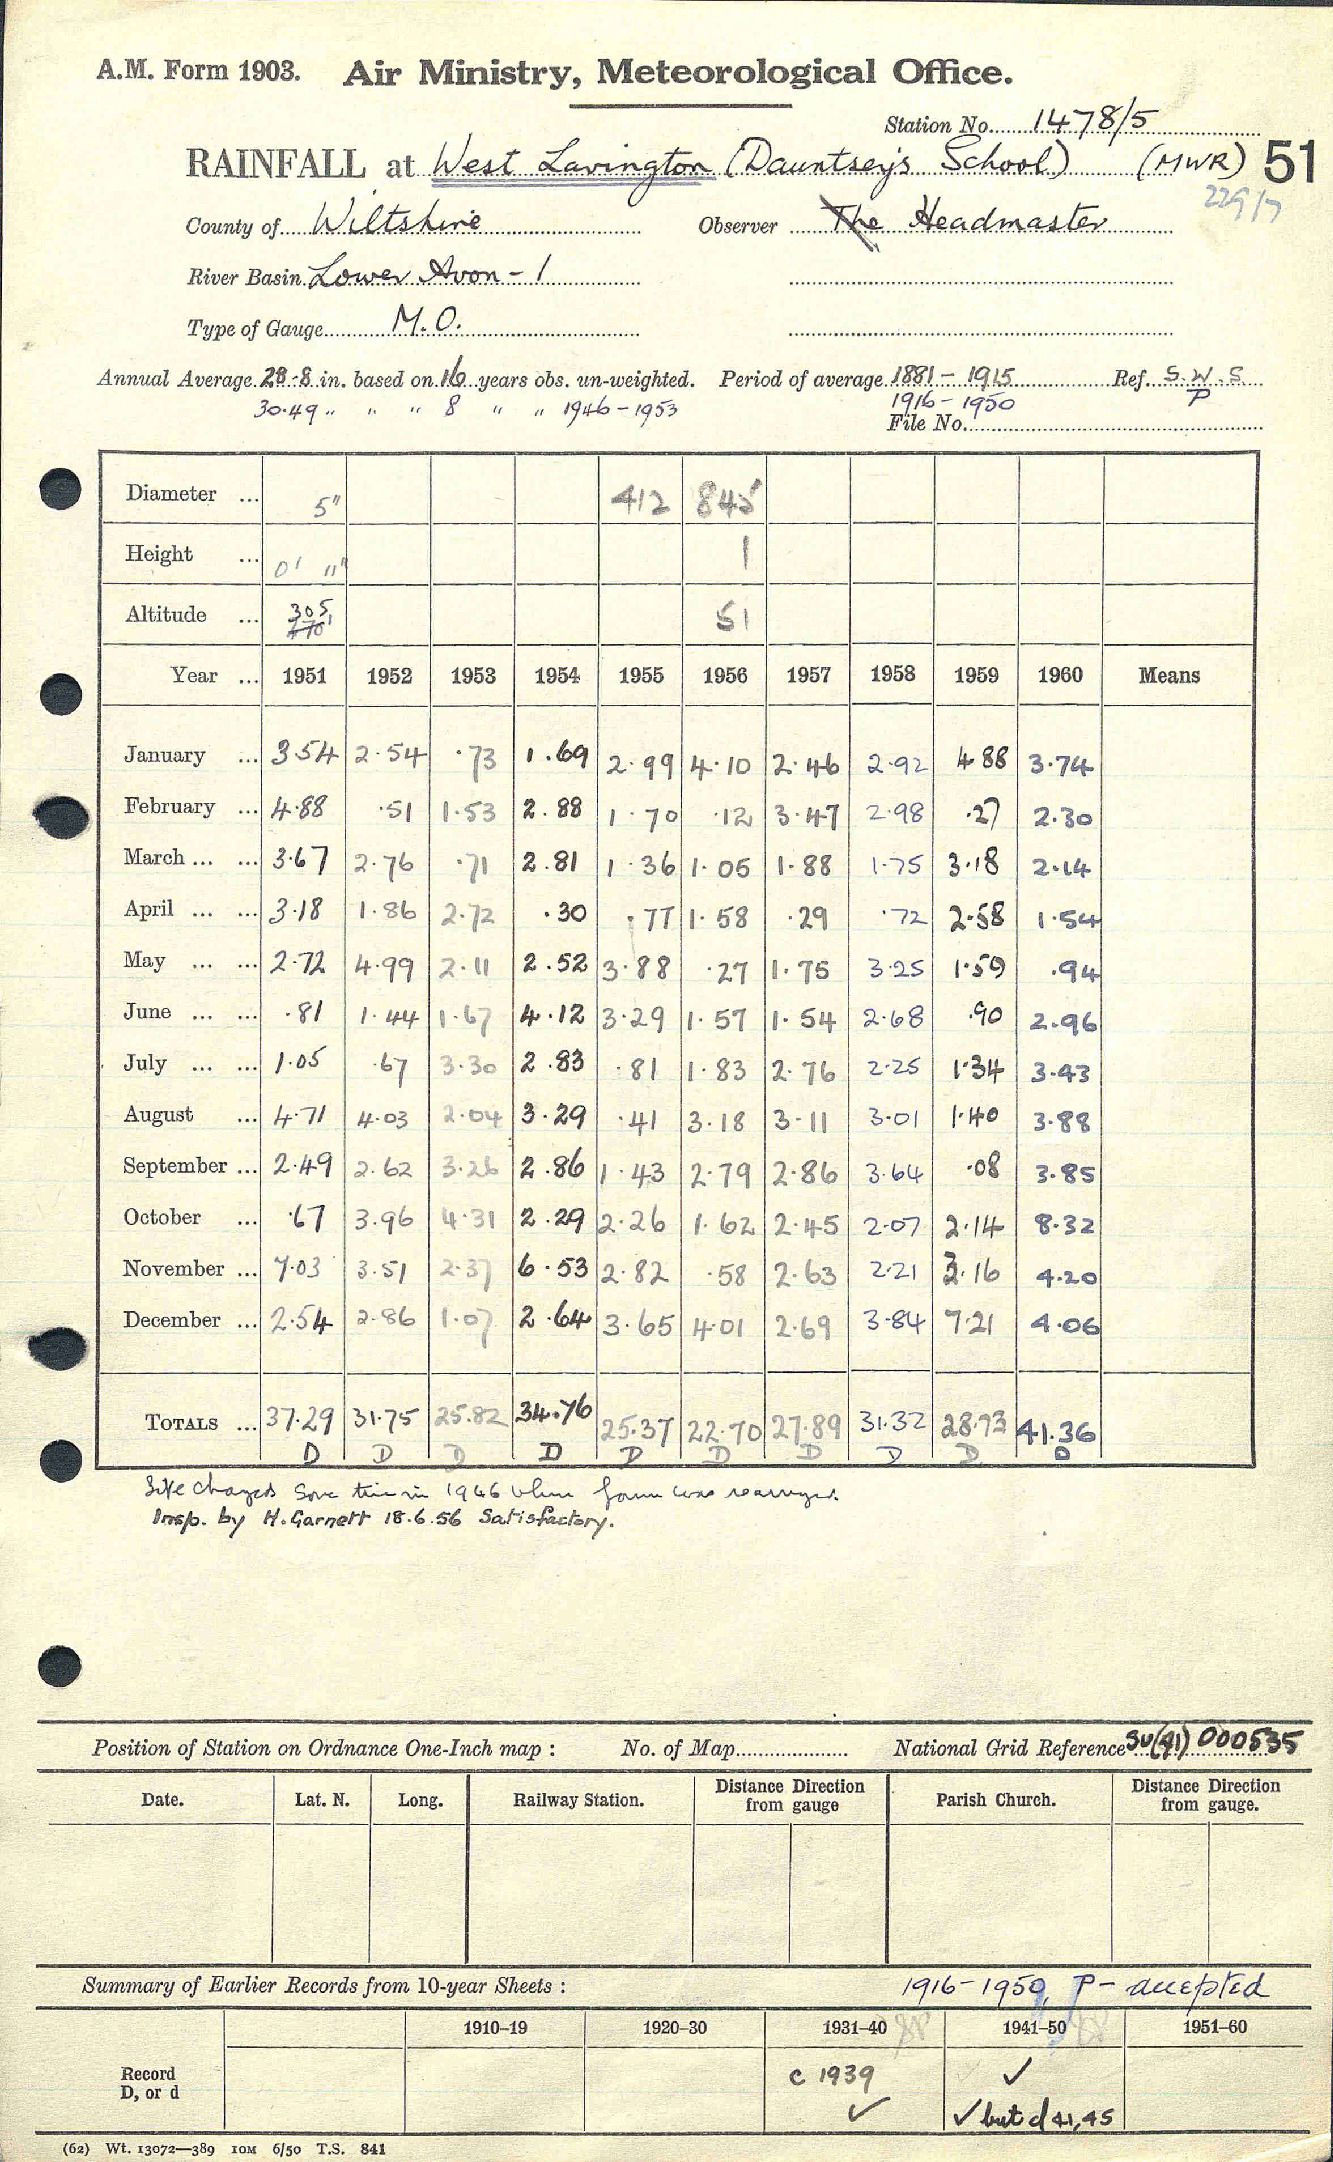 A.M. Form 1903. Air Ministry, Meteorological Office.
Station No. 1478/5
RAINFALL at West Lavington (Dauntsey's School) (MWR) 51
229/7
County of Wiltshire Observer The Headmaster
River Basin Lower Avon - 1
Type of Gauge M.O.
Annual Average 28.8 in. based on 16 years obs. un-weighted. Period of average 1881 - 1915 Ref. S.W.S
30.49 " " " 8 " " 1946-1953 1916-1950 P
File No.
Diameter ... 5" 412 845
Height ... 0' 11" 1
Altitude ... 305 51
Year ... 1951 1952 1953 1954 1955 1956 1957 1958 1959 1960 Means
January ... 3.54 2.54 .73 1.69 2.99 4.10 2.46 2.92 4.88 3.74
February ... 4.88 .51 1.53 2.88 1.70 .12 3.47 2.98 .27 2.30
March ... ... 3.67 2.76 .71 2.81 1.36 1.05 1.88 1.75 3.18 2.14
April ... ... 3.18 1.86 2.72 .30 .77 1.58 .29 .72 2.58 1.54
May ... ... 2.72 4.99 2.11 2.52 3.88 .27 1.75 3.25 1.59 .94
June ... ... .81 1.44 1.67 4.12 3.29 1.57 1.54 2.68 .90 2.96
July ... ... 1.05 .67 3.30 2.83 .81 1.83 2.76 2.25 1.34 3.43
August ... 4.71 4.03 2.04 3.29 .41 3.18 3.11 3.01 1.40 3.88
September ... 2.49 2.62 3.26 2.86 1.43 2.79 2.86 3.64 .08 3.85
October ... .67 3.96 4.31 2.29 2.26 1.62 2.45 2.07 2.14 8.32
November ... 7.03 3.51 2.37 6.53 2.82 .58 2.63 2.21 3.16 4.20
December ... 2.54 2.86 1.07 2.64 3.65 4.01 2.69 3.84 7.21 4.06
TOTALS ... 37.29 31.75 25.82 34.76 25.37 22.70 27.89 31.32 28.73 41.36
D D D D D D D D D D
Site changed some time in 1946 when farm was rearranged.
Insp. by H. Garnett 18.6.56 Satisfactory.
Position of Station on Ordnance One-Inch map : No. of Map National Grid Reference SU(41) 000535
Date. Lat. N. Long. Railway Station. Distance from gauge Direction Parish Church. Distance from gauge. Direction
Summary of Earlier Records from 10-year Sheets : 1916-1950, P - accepted
1910–19 1920–30 1931–40 1941–50 1951–60
Record D, or d c 1939 ✓
✓ ✓ but d 41,45
(62) Wt. 13072—389 10M 6/50 T.S. 841